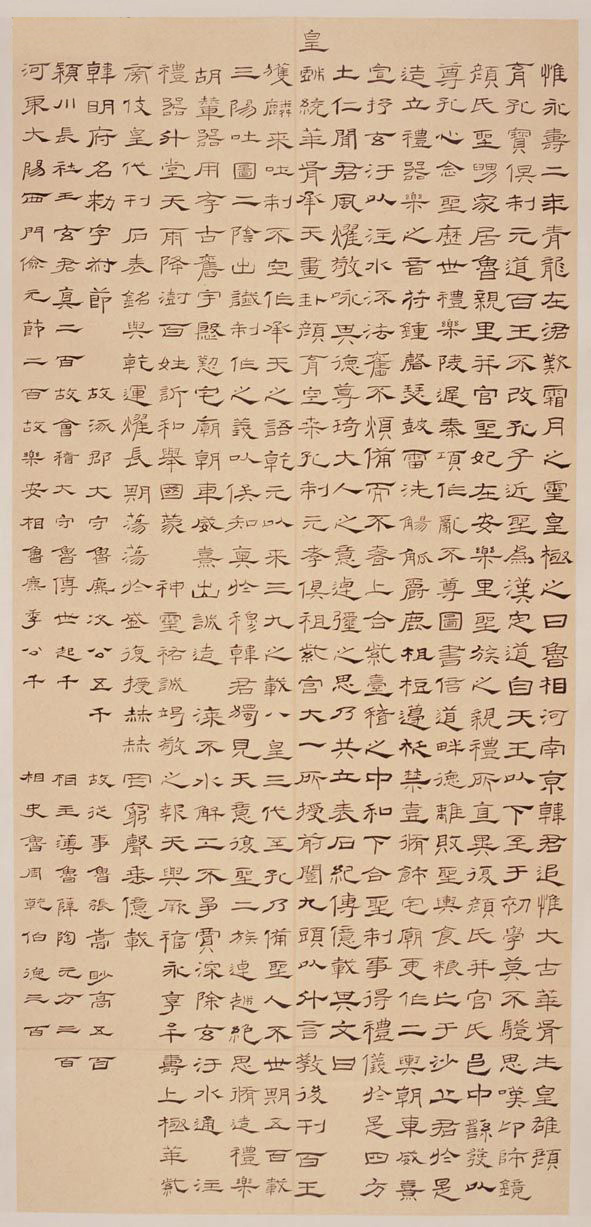 惟永壽二年青龍在涒歎霜月之靈皇極之日魯相河南京韓君追惟大古華胥生皇雄顏
育孔寶俱制元道百王不改孔子近聖為漢定道自天王以下至于初學莫不驥思嘆卬師鏡
顏氏聖舅家居魯親里并官聖妃在安樂里聖族之親禮所宜異復顏氏并官氏邑中繇發以
尊孔心念聖歷世禮樂陵遲秦項作亂不尊圖書倍道畔德離敗聖輿食糧亡于沙丘君於是
造立禮器樂之音符鍾磬瑟鼓雷洗觴觚爵鹿柤梪籩柉禁壺脩飾宅廟更作二輿朝車威熹
宣抒玄汙以注水流法舊不煩備而不奢上合紫臺稽之中和下合聖制事得禮儀於是四方
士仁聞君風燿敬咏其德尊琦大人之意逴彌之思乃共立表石紀傳億載其文曰
皇戲統華胥承天畫卦顏育空桑孔制元孝俱祖紫宮大一所授前闓九頭以什言教後制百王
獲麟來吐制不空作承天之語乾元以來三九之載八皇三代至孔乃備聖人不世期五百載
三陽吐圖二陰出讖制作之義以俟知奧於穆韓君獨見天意復聖二族逴越絕思脩造禮樂
胡輦器用存古舊宇慇懃宅廟朝車威熹出誠造 漆不水解工不爭賈深除玄汙水通 注
禮器升堂天雨降澍百姓訢和舉國蒙 神靈祐誠竭敬之報天與厥福永享牟壽上極華紫
旁伎皇代刊石表銘與乾運燿長期蕩蕩於盛復授赫赫罔窮聲垂億載
韓明府名勑字叔節 故涿郡大守魯麃次公五千 故從事魯張嵩眇高五百
潁川長社王玄君真二百 故會稽大守魯傅世起千 相主薄魯薛陶元方三百
河東大陽西門儉元節二百 故樂安相魯麃季公千 相史魯周乾伯德三百